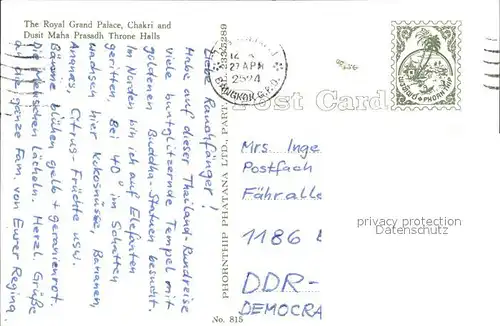 The Royal Grand Palace, Chakri and
Dusit Maha Prasadh Throne Halls
Liebe Rauchfänger!
Habe auf dieser Thailand-Rundreise
viele buntglitzernde Tempel mit
goldenen Buddha-Statuen besucht.
Im Norden bin ich auf Elefanten
geritten. Bei 40° im Schatten
wachsen hier Kokosnüsse, Bananen,
Ananas, Citrus-Früchte usw.
Bäume blühen gelb + geranienrot.
Die Menschen lächeln. Herzl. Grüße
an die ganze Fam. von Eurer Regina
PHORNTHIP PHATTANA LTD., PART.
No. 815
27 APR
2524
BANGKOK G.P.O.
Post Card
Mrs. Inge
Postfach
Fähralle
1186
DDR-
DEMOCRA
privacy protection
Datenschutz